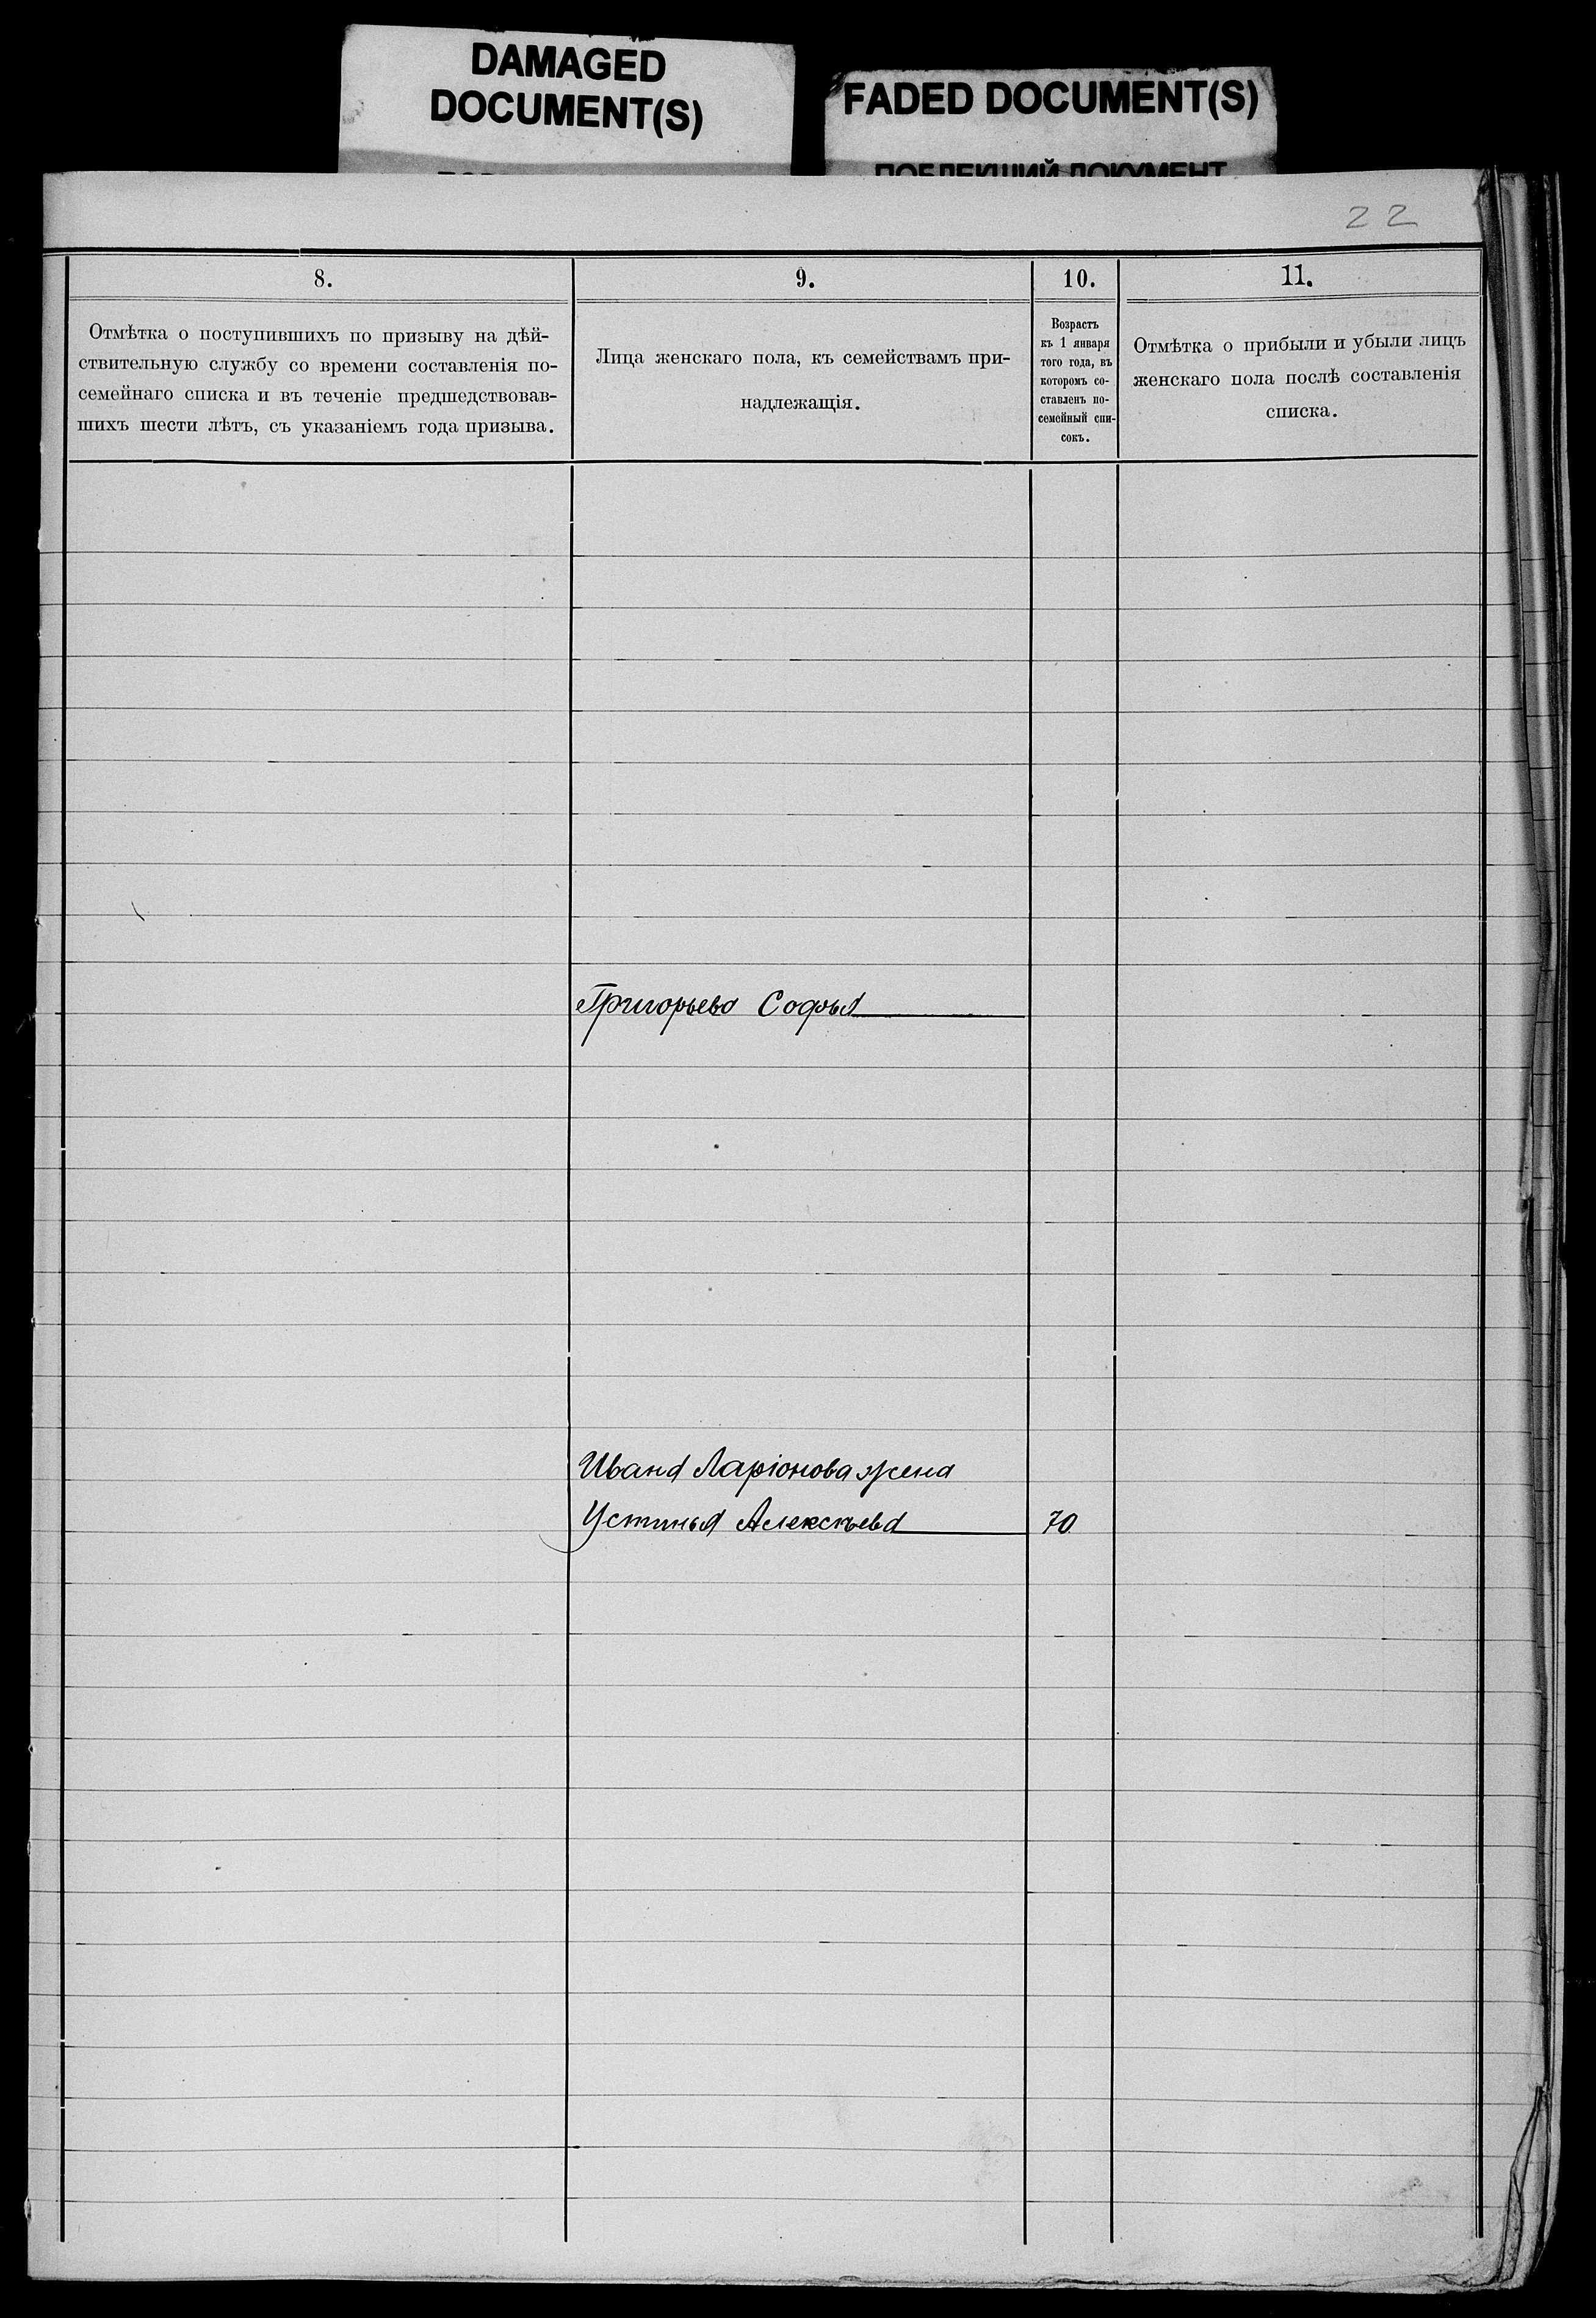 DAMAGED
DOCUMENT(S)
FADED DOCUMENT(S)
ПОБЛЕКШИЙ ДОКУМЕНТ
22
8.
9.
10.
11.
Отмѣтка о поступившихъ по призыву на дѣй-
ствительную службу со времени составленія по-
семейнаго списка и въ теченіе предшедствовав-
шихъ шести лѣтъ, съ указаніемъ года призыва.
Лица женскаго пола, къ семействамъ при-
надлежащія.
Возрастъ
къ 1 января
того года, въ
которомъ со-
ставленъ по-
семейный спи-
сокъ.
Отмѣтка о прибыли и убыли лицъ
женскаго пола послѣ составленія
списка.
Григорьева Софья
Ивана Ларіонова жена
Устинья Алексѣева 70